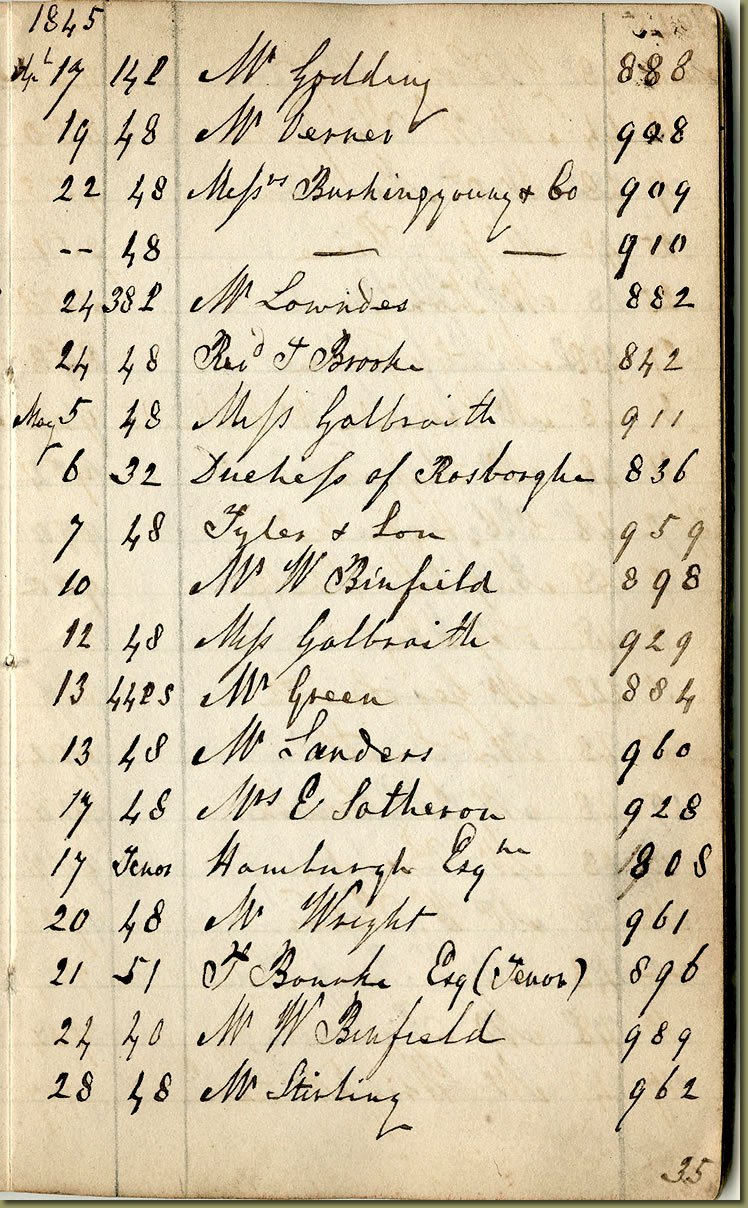 1845
Apl 17 14 P Mr Godding 888
19 48 Mr Verner 908
22 48 Messrs Bushingyoung & Co 909
-- 48 — — 910
24 38 P Mr Lowndes 882
24 48 Revd T Brooke 842
May 5 48 Miss Galbraith 911
6 32 Duchess of Roxborghe 836
7 48 Tyler & Son 959
10 Mr W Binfield 898
12 48 Miss Galbraith 929
13 44 P S Mr Green 884
13 48 Mr Sanders 960
17 48 Mrs E Sotheron 928
17 Tenor Hamburgh Esqre 808
20 48 Mr Wright 961
21 51 Esq (Tenor) 896
24 40 Mr W Binfield 989
28 48 Mr Stirling 962
35